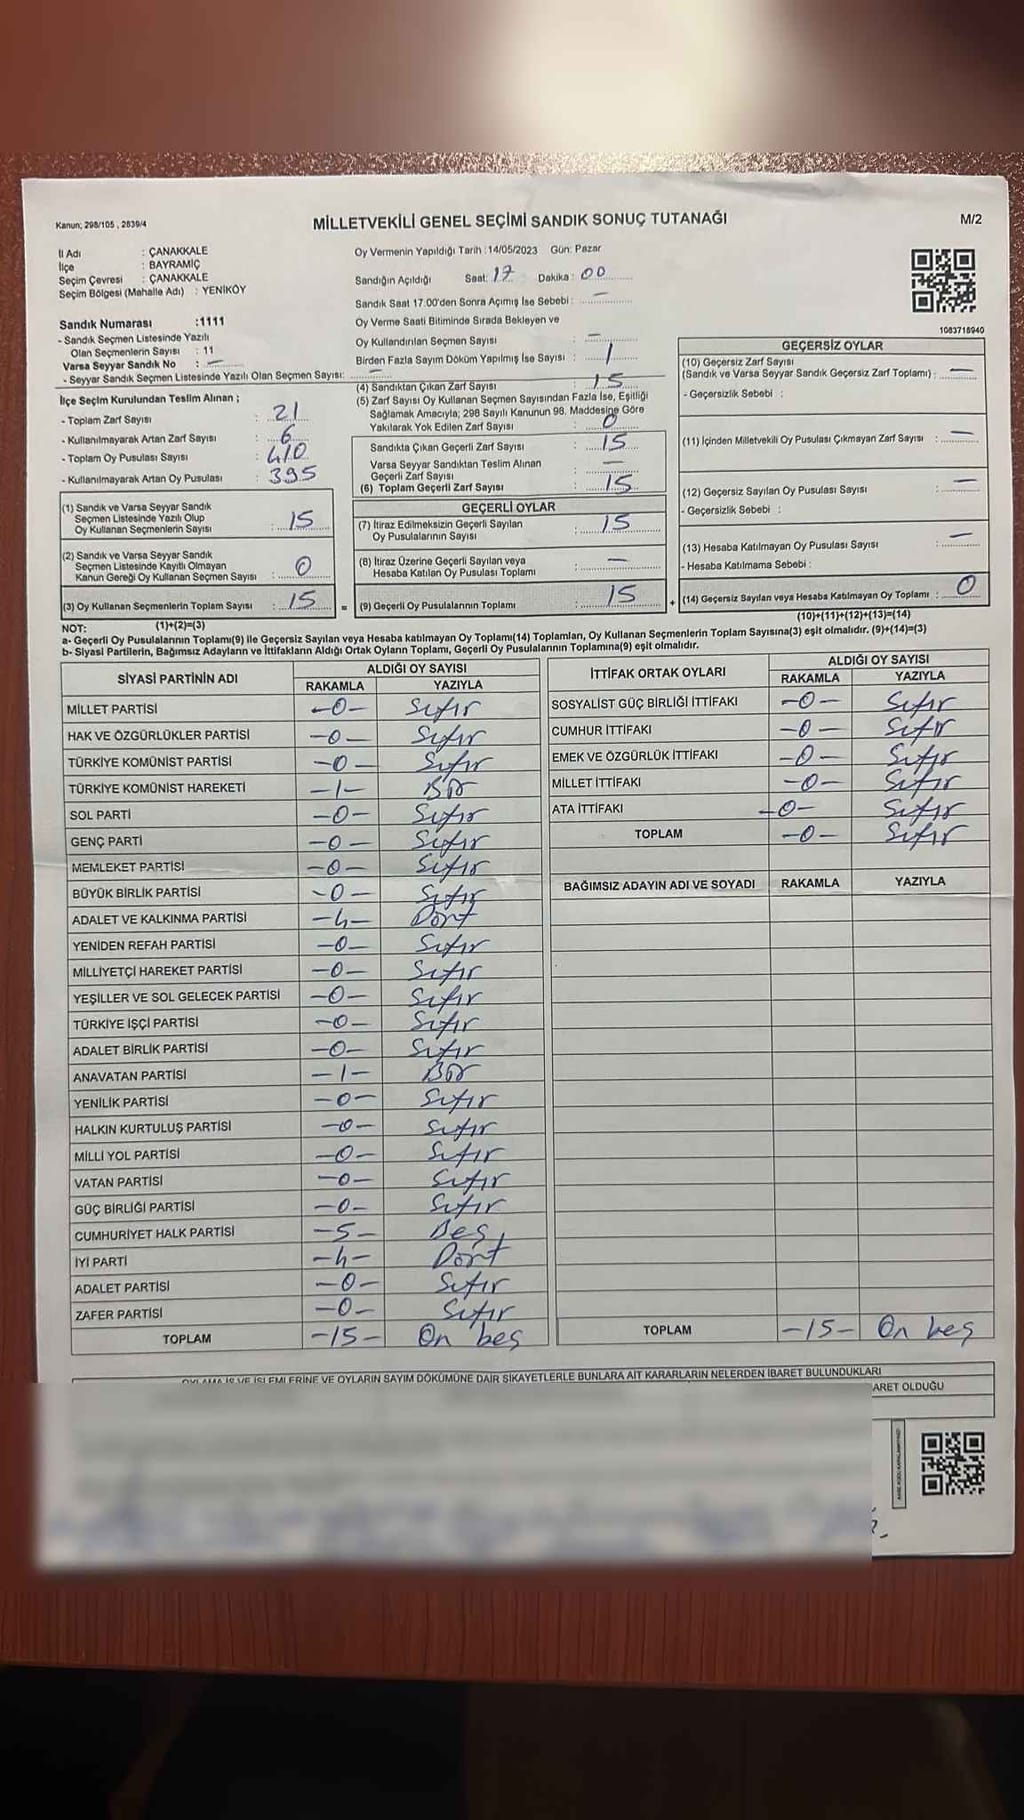 Kanun; 298/105 , 2839/4
MİLLETVEKİLİ GENEL SEÇİMİ SANDIK SONUÇ TUTANAĞI
M/2
İl Adı : ÇANAKKALE
İlçe : BAYRAMİÇ
Seçim Çevresi : ÇANAKKALE
Seçim Bölgesi (Mahalle Adı) : YENİKÖY
Oy Vermenin Yapıldığı Tarih :14/05/2023 Gün: Pazar
Sandığın Açıldığı Saat: 17 Dakika : 00
Sandık Saat 17.00'den Sonra Açımış İse Sebebi : —
Oy Verme Saati Bitiminde Sırada Bekleyen ve
Oy Kullandırılan Seçmen Sayısı : —
Birden Fazla Sayım Döküm Yapılmış İse Sayısı : 1
1083718940
Sandık Numarası :1111
- Sandık Seçmen Listesinde Yazılı
Olan Seçmenlerin Sayısı : 11
Varsa Seyyar Sandık No : —
- Seyyar Sandık Seçmen Listesinde Yazılı Olan Seçmen Sayısı: —
İlçe Seçim Kurulundan Teslim Alınan ;
- Toplam Zarf Sayısı : 21
- Kullanılmayarak Artan Zarf Sayısı : 6
- Toplam Oy Pusulası Sayısı : 410
- Kullanılmayarak Artan Oy Pusulası : 395
(1) Sandık ve Varsa Seyyar Sandık
Seçmen Listesinde Yazılı Olup
Oy Kullanan Seçmenlerin Sayısı : 15
(2) Sandık ve Varsa Seyyar Sandık
Seçmen Listesinde Kayıtlı Olmayan
Kanun Gereği Oy Kullanan Seçmen Sayısı : 0
(3) Oy Kullanan Seçmenlerin Toplam Sayısı : 15 =
(4) Sandıktan Çıkan Zarf Sayısı : 15
(5) Zarf Sayısı Oy Kullanan Seçmen Sayısından Fazla İse, Eşitliği
Sağlamak Amacıyla; 298 Sayılı Kanunun 98. Maddesine Göre
Yakılarak Yok Edilen Zarf Sayısı : 0
Sandıkta Çıkan Geçerli Zarf Sayısı : 15
Varsa Seyyar Sandıktan Teslim Alınan
Geçerli Zarf Sayısı : —
(6) Toplam Geçerli Zarf Sayısı : 15
GEÇERLİ OYLAR
(7) İtiraz Edilmeksizin Geçerli Sayılan
Oy Pusulalarının Sayısı : 15
(8) İtiraz Üzerine Geçerli Sayılan veya
Hesaba Katılan Oy Pusulası Toplamı : —
(9) Geçerli Oy Pusulalarının Toplamı : 15 +
GEÇERSİZ OYLAR
(10) Geçersiz Zarf Sayısı
(Sandık ve Varsa Seyyar Sandık Geçersiz Zarf Toplamı) : —
- Geçersizlik Sebebi :
(11) İçinden Milletvekili Oy Pusulası Çıkmayan Zarf Sayısı : —
(12) Geçersiz Sayılan Oy Pusulası Sayısı : —
- Geçersizlik Sebebi :
(13) Hesaba Katılmayan Oy Pusulası Sayısı : —
- Hesaba Katılmama Sebebi :
(14) Geçersiz Sayılan veya Hesaba Katılmayan Oy Toplamı : 0
NOT: (1)+(2)=(3)
(10)+(11)+(12)+(13)=(14)
a- Geçerli Oy Pusulalarının Toplamı(9) ile Geçersiz Sayılan veya Hesaba katılmayan Oy Toplamı(14) Toplamları, Oy Kullanan Seçmenlerin Toplam Sayısına(3) eşit olmalıdır. (9)+(14)=(3)
b- Siyasi Partilerin, Bağımsız Adayların ve İttifakların Aldığı Ortak Oyların Toplamı, Geçerli Oy Pusulalarının Toplamına(9) eşit olmalıdır.
SİYASİ PARTİNİN ADI ALDIĞI OY SAYISI
RAKAMLA YAZIYLA
MİLLET PARTİSİ -0- Sıfır
HAK VE ÖZGÜRLÜKLER PARTİSİ -0- Sıfır
TÜRKİYE KOMÜNİST PARTİSİ -0- Sıfır
TÜRKİYE KOMÜNİST HAREKETİ -1- Bir
SOL PARTİ -0- Sıfır
GENÇ PARTİ -0- Sıfır
MEMLEKET PARTİSİ -0- Sıfır
BÜYÜK BİRLİK PARTİSİ -0- Sıfır
ADALET VE KALKINMA PARTİSİ -4- Dört
YENİDEN REFAH PARTİSİ -0- Sıfır
MİLLİYETÇİ HAREKET PARTİSİ -0- Sıfır
YEŞİLLER VE SOL GELECEK PARTİSİ -0- Sıfır
TÜRKİYE İŞÇİ PARTİSİ -0- Sıfır
ADALET BİRLİK PARTİSİ -0- Sıfır
ANAVATAN PARTİSİ -1- Bir
YENİLİK PARTİSİ -0- Sıfır
HALKIN KURTULUŞ PARTİSİ -0- Sıfır
MİLLİ YOL PARTİSİ -0- Sıfır
VATAN PARTİSİ -0- Sıfır
GÜÇ BİRLİĞİ PARTİSİ -0- Sıfır
CUMHURİYET HALK PARTİSİ -5- Beş
İYİ PARTİ -4- Dört
ADALET PARTİSİ -0- Sıfır
ZAFER PARTİSİ -0- Sıfır
TOPLAM -15- On beş
İTTİFAK ORTAK OYLARI ALDIĞI OY SAYISI
RAKAMLA YAZIYLA
SOSYALİST GÜÇ BİRLİĞİ İTTİFAKI -0- Sıfır
CUMHUR İTTİFAKI -0- Sıfır
EMEK VE ÖZGÜRLÜK İTTİFAKI -0- Sıfır
MİLLET İTTİFAKI -0- Sıfır
ATA İTTİFAKI -0- Sıfır
TOPLAM -0- Sıfır
BAĞIMSIZ ADAYIN ADI VE SOYADI RAKAMLA YAZIYLA
TOPLAM -15- On beş
OYLAMA İŞ VE İŞLEMLERİNE VE OYLARIN SAYIM DÖKÜMÜNE DAİR ŞİKAYETLERLE BUNLARA AİT KARARLARIN NELERDEN İBARET BULUNDUKLARI
ARET OLDUĞU